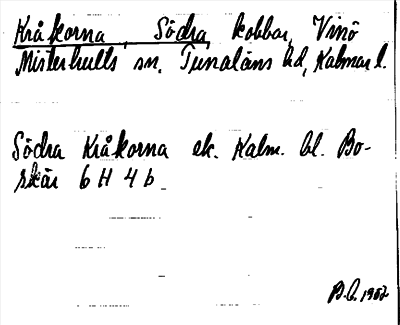 Kråkorna, Södra, kobbar, Vinö
Misterhults sn, Tunaläns hd, Kalmar l.
Södra Kråkorna ek. Kalm. bl. Bo-
skär 6 H 4 b
B.G. 1952